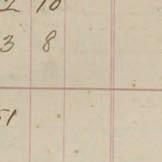 2 10
3 8
51